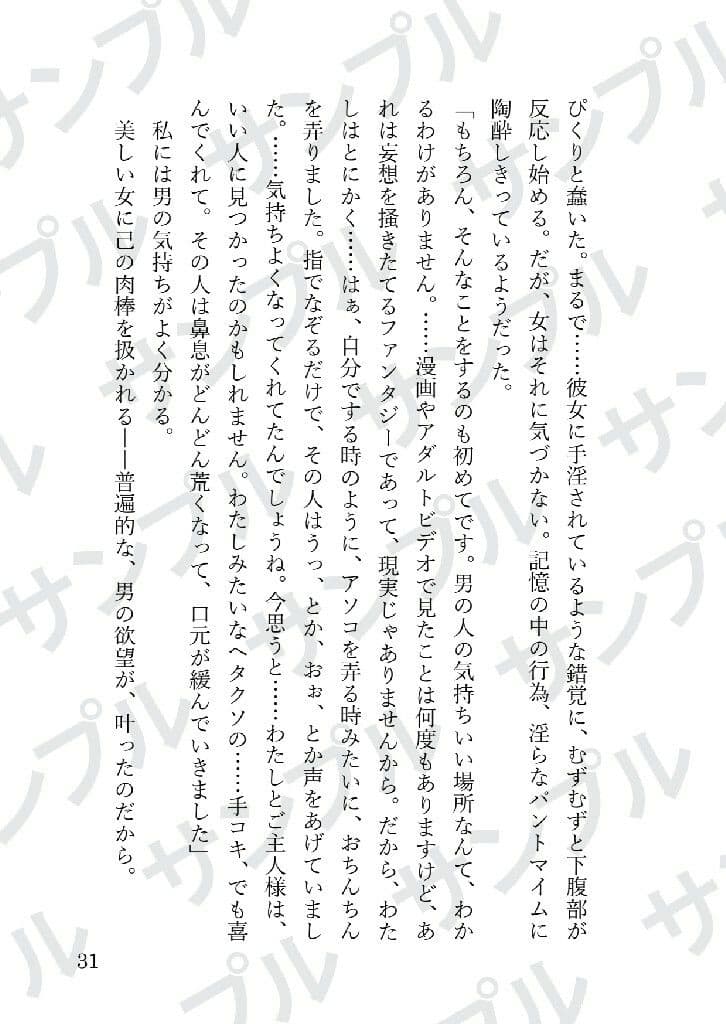 ぴくりと蠢いた。まるで……彼女に手淫されているような錯覚に、むずむずと下腹部が
反応し始める。だが、女はそれに気づかない。記憶の中の行為、淫らなパントマイムに
陶酔しきっているようだった。
「もちろん、そんなことをするのも初めてです。男の人の気持ちいい場所なんて、わか
るわけがありません。……漫画やアダルトビデオで見たことは何度もありますけど、あ
れは妄想を掻きたてるファンタジーであって、現実じゃありませんから。だから、わた
しはとにかく……はぁ、自分でする時のように、アソコを弄る時みたいに、おちんちん
を弄りました。指でなぞるだけで、その人はうっ、とか、おぉ、とか声をあげていまし
た。……気持ちよくなってくれてたんでしょうね。今思うと……わたしとご主人様は、
いい人に見つかったのかもしれません。わたしみたいなヘタクソの……手コキ、でも喜
んでくれて。その人は鼻息がどんどん荒くなって、口元が緩んでいきました」
私には男の気持ちがよく分かる。
美しい女に己の肉棒を扱かれる――普遍的な、男の欲望が、叶ったのだから。
31
サンプル
サンプル
サンプル
サンプル
サンプル
サンプル
サンプル
サンプル
サンプル
サンプル
サンプル
サンプル